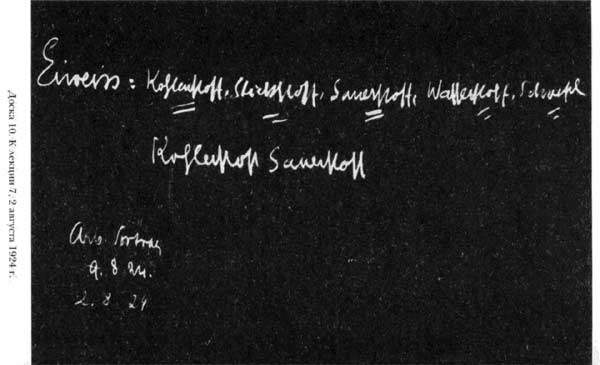 Доска 10. К лекции 7, 2 августа 1924 г.
Eiweiss : Kohlenstoff, Stickstoff, Sauerstoff, Wasserstoff, Schwefel
Kohlenstoff Sauerstoff
Vortrag
9. 8 24.
2. 8. 24